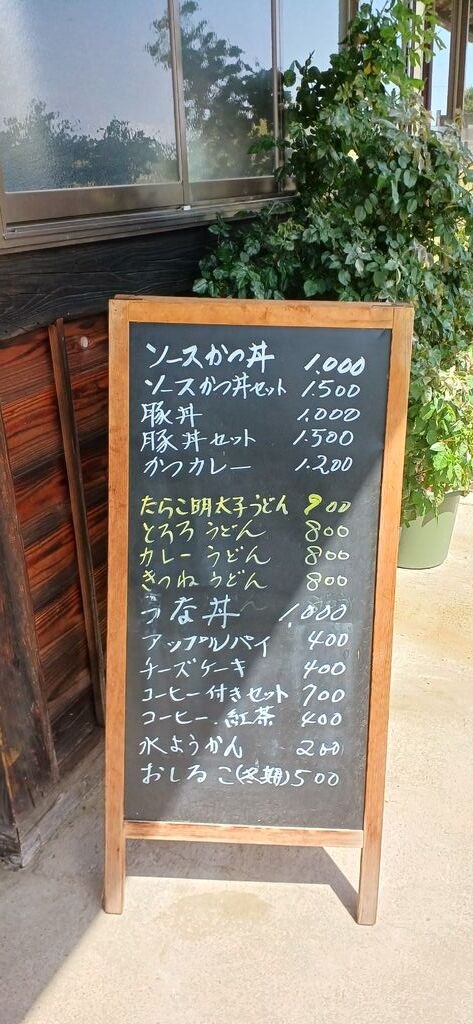 ソースかつ丼 1,000
ソースかつ丼セット 1.500
豚丼 1,000
豚丼セット 1.500
かつカレー 1.200
たらこ明太子うどん 900
とろろうどん 800
カレーうどん 800
きつねうどん 800
うな丼 1,000
アップルパイ 400
チーズケーキ 400
コーヒー付きセット 700
コーヒー.紅茶 400
水ようかん 200
おしるこ(冬期)500